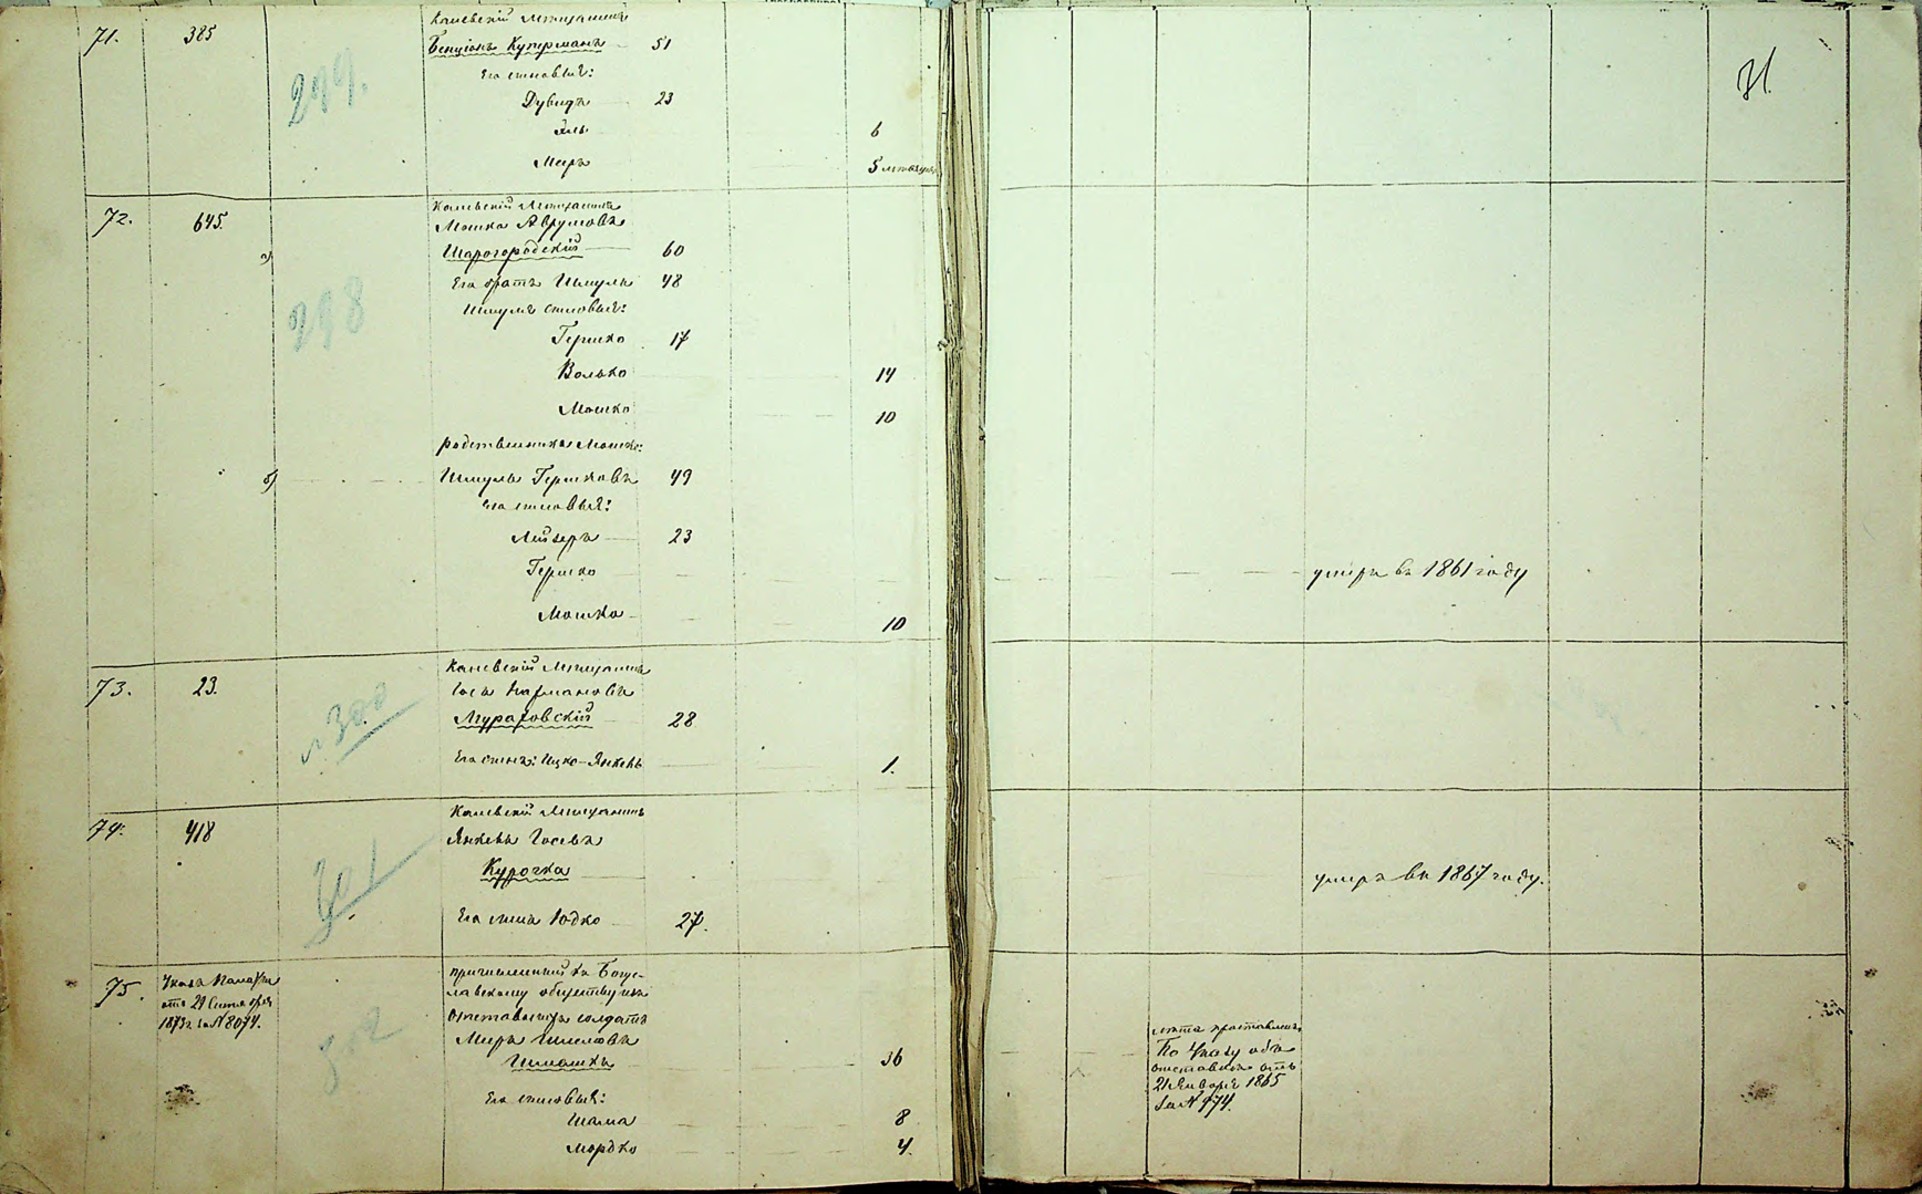 71. 385 Каневскій Мѣщанинъ
299.
Бенціонъ Куперманъ 51
Его сыновья:
Дувидъ 23
Эль 6
Меръ 5
31.
72. 645. Каневскій Мѣщанинъ
Мошко Аврумовъ
а)
Шарогородскій 60
298
Его братъ Шмуль 48
Шмуля сыновья:
Гершко 17
Волько 14
Мошко 10
родственникъ Мошки:
б) Шмуль Гершковъ 49
Его сыновья:
Лейзеръ 23
Гершко умеръ въ 1861 году
Мошко 10
73. 23. Каневскій Мѣщанинъ
300
Мураховскій 28
Его сынъ: Ицко-Янкель 1.
74. 418 Каневскій Мѣщанинъ
301
Янкель Іосевъ
Курочка умеръ въ 1867 году.
Его сынъ Юдко 27.
75. Указъ Палаты
отъ 29 Сентября
1873 г. за № 8074.
302
причисленный къ Богу-
славскому обществу изъ
отставныхъ солдатъ
Меръ Шмулевъ
Шмошка 36
лѣта проставлены
По Указу объ
отставкѣ отъ
21 Января 1865
за № 974.
Его сыновья:
Шама 8
Мордко 4.